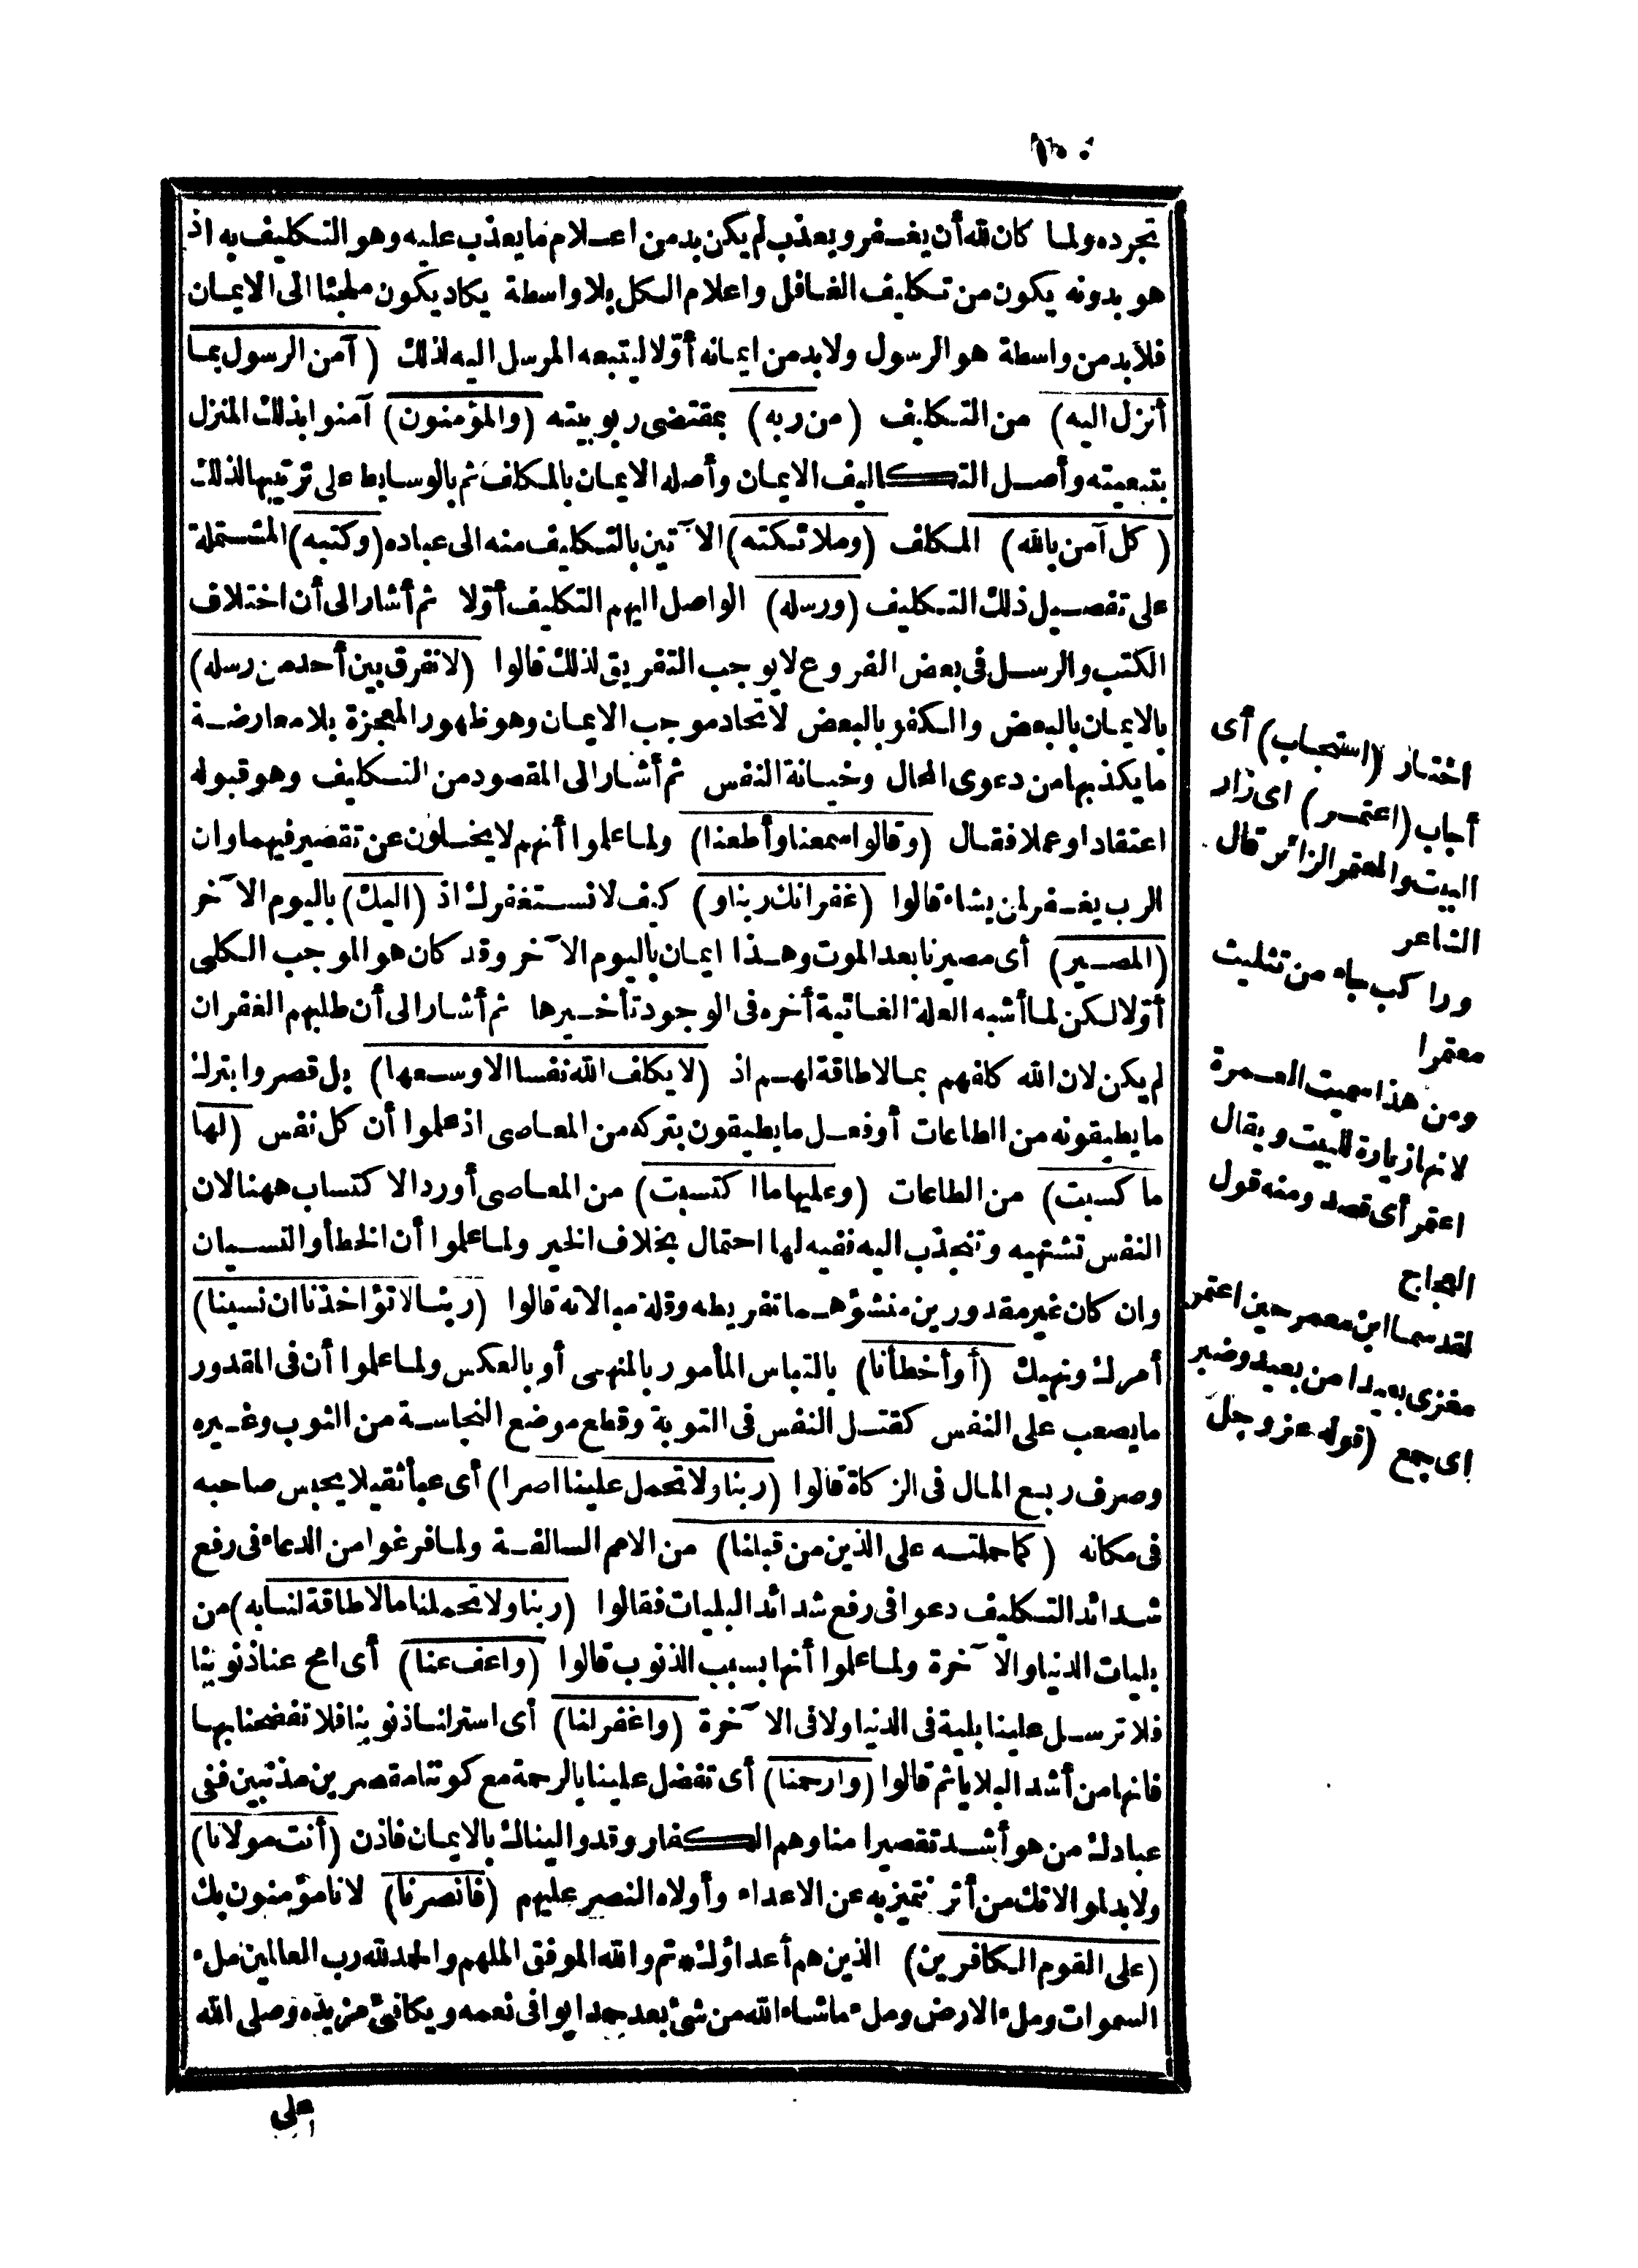 تجرده ولما كان لله أن يغفر ويعذب لم يكن بد من اعلام ما يعذب عليه وهو التكليف به اذ
هو بدونه يكون من تكليف الغافل واعلام الكل بلا واسطة يكاد يكون ملجئا الى الايمان
فلابد من واسطة هو الرسول ولا بد من ايمانه أوّلا ليتبعه المرسل اليه لذلك (آمن الرسول بما
أنزل اليه) من التكليف (من ربه) بمقتضى ربوبيته (والمؤمنون) آمنوا بذلك المنزل
بتبعيته وأصل التكاليف الايمان وأصله الايمان بالمكلف ثم بالوسايط على ترتيبها لذلك
(كل آمن بالله) المكلف (وملائكته) الآتين بالتكليف منه الى عباده (وكتبه) المشتملة
على تفصيل ذلك التكليف (ورسله) الواصل اليهم التكليف أوّلا ثم أشار الى أن اختلاف
الكتب والرسل فى بعض الفروع لا يوجب التفريق لذلك قالوا (لا نفرق بين أحد من رسله)
بالايمان بالبعض والكفر بالبعض لاتحاد موجب الايمان وهو ظهور المعجزة بلا معارضة
ما يكذبها من دعوى المحال وخيانة النفس ثم أشار الى المقصود من التكليف وهو قبوله
اعتقادا وعملا فقال (وقالوا سمعنا وأطعنا) ولما علموا أنهم لا يخلون عن تقصير فيهما وان
الرب يغفر لمن يشاء قالوا (غفرانك ربنا و) كيف لا نستغفرك اذ (اليك) باليوم الآخر
(المصير) أى مصيرنا بعد الموت وهذا ايمان باليوم الآخر وقد كان هو الموجب الكلى
أوّلا لكن لما أشبه العلة الغائية أخره فى الوجود تأخيرها ثم أشار الى أن طلبهم الغفران
لم يكن لان الله كلفهم بما لا طاقة لهم اذ (لا يكلف الله نفسا الا وسعها) بل قصروا بترك
ما يطيقونه من الطاعات أو فعل ما يطيقون بتركه من المعاصى اذ علموا أن كل نفس (لها
ما كسبت) من الطاعات (وعليها ما اكتسبت) من المعاصى أورد الاكتساب ههنا لان
النفس تشتهيه وتنجذب اليه ففيه لها احتمال بخلاف الخير ولما علموا أن الخطأ والنسيان
وان كان غير مقدورين منشؤهما تفريطه وقلة مبالاته قالوا (ربنا لا تؤاخذنا ان نسينا)
أمرك ونهيك (أو أخطأنا) بالتباس المأمور بالمنهى أو بالعكس ولما علموا أن فى المقدور
ما يصعب على النفس كقتل النفس فى التوبة وقطع موضع النجاسة من الثوب وغيره
وصرف ربع المال فى الزكاة قالوا (ربنا ولا تحمل علينا اصرا) أى عبأ ثقيلا يحبس صاحبه
فى مكانه (كما حملته على الذين من قبلنا) من الامم السالفة ولما فرغوا من الدعاء فى رفع
شدائد التكليف دعوا فى رفع شدائد البليات فقالوا (ربنا ولا تحملنا ما لا طاقة لنا به) من
بليات الدنيا والآخرة ولما علموا أنها بسبب الذنوب قالوا (واعف عنا) أى امح عنا ذنوبنا
فلا ترسل علينا بلية فى الدنيا ولا فى الآخرة (واغفر لنا) أى استر لنا ذنوبنا فلا تفضحنا بها
فانها من أشد البلايا ثم قالوا (وارحمنا) أى تفضل علينا بالرحمة مع كوننا مقصرين مذنبين ففى
عبادك من هو أشد تقصيرا منا وهم الكفار وقد واليناك بالايمان فاذن (أنت مولانا)
ولا بد لموالاتك من أثر نتميز به عن الاعداء وأولاه النصر عليهم (فانصرنا) لانا مؤمنون بك
(على القوم الكافرين) الذين هم أعداؤك * تم والله الموفق الملهم والحمد لله رب العالمين ملء
السموات وملء الارض وملء ما شاء الله من شئ بعد حمدا يوافى نعمه ويكافئ مزيده وصلى الله
على
اختار (استجاب) أى
أجاب (اعتمر) اى زار
البيت والمعتمر الزائر قال
الشاعر
وراكب جاء من تثليث
معتمرا
ومن هذا سميت العمرة
لانها زيارة للبيت ويقال
اعتمر أى قصد ومنه قول
العجاج
لقد سما ابن معمر حين اعتمر
مغزى بعيدا من بعيد وضبر
اى جمع (قوله عز وجل